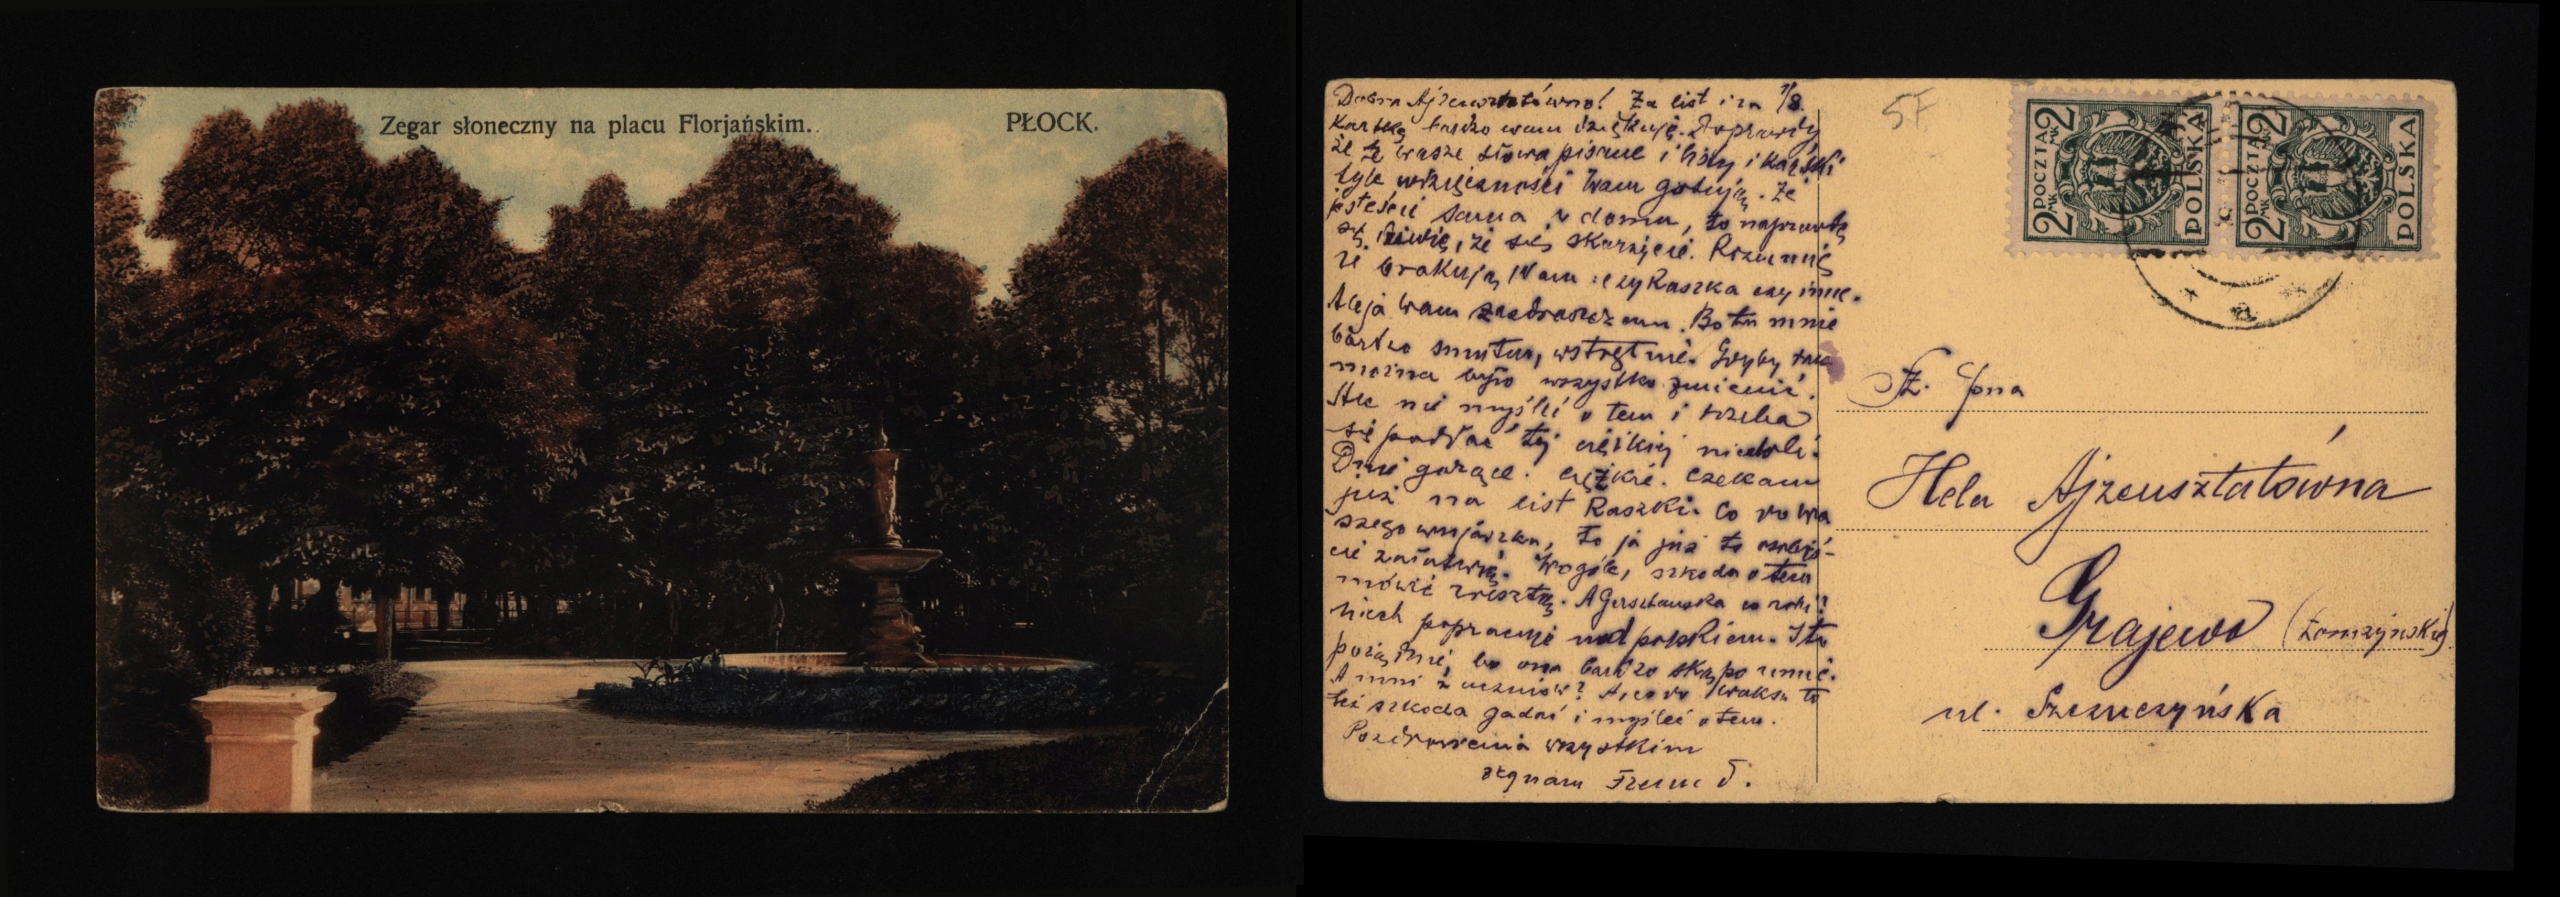 Zegar słoneczny na placu Florjańskim.
PŁOCK.
Dobra Ajzensztatówno! Za list i za 7/8.
kartkę bardzo wam dziękuję. Doprawdy
że te wasze słowa pisane i listy i kartki
tyle wdzięczności Wam gotują. Że
jesteście sama w domu, to naprawdę
się dziwię, że się skarżycie. Rozumię
że brakują Wam: czy Raszka czy inne.
Ale ja wam zazdroszczam. Bo tu mnie
bardzo smutno, wstrętnie. Gdyby
można było wszystko zmienić.
Ale nie myśleć o tem i trzeba
się poddać tej ciężkiej niedoli.
Dnie gorące. ciężkie. czekam
już na list Raszki. Co do wa
szego wujaszka, to ja już to osobiś-
cie załatwię. Wogóle, szkoda o tem
mówić zresztą. A co robi?
Niech popracuje nad polskiem. I to
porządnie, bo ona bardzo skąpo umie.
A inni z uczniów? A co do to
też szkoda gadać i myśleć o tem.
Pozdrowienia wszystkim
żegnam
5F
POCZTA POLSKA
2 MK 2
POCZTA POLSKA
2 MK 2
Sz. Pna
Hela Ajzensztatówna
Grajewo (Łomżyńskie)
ul. Szczuczyńska